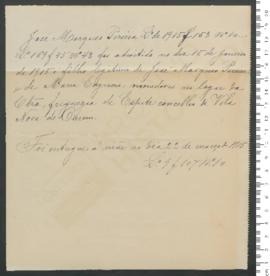 José Marques Pereira L.º de 1915 f 153 nº 10
L.º 169 f 95 nº 43 foi admitido no dia 15 de janeiro
de 1915 e filho legitimo de José Marques Pereira
e de Maria moradores no logar da
freguezia de Espite concelho de Vila
Nova de Ourem.
Foi entregue á mãe no dia 22 de março 1915
L.º 9 f 107 nº 10